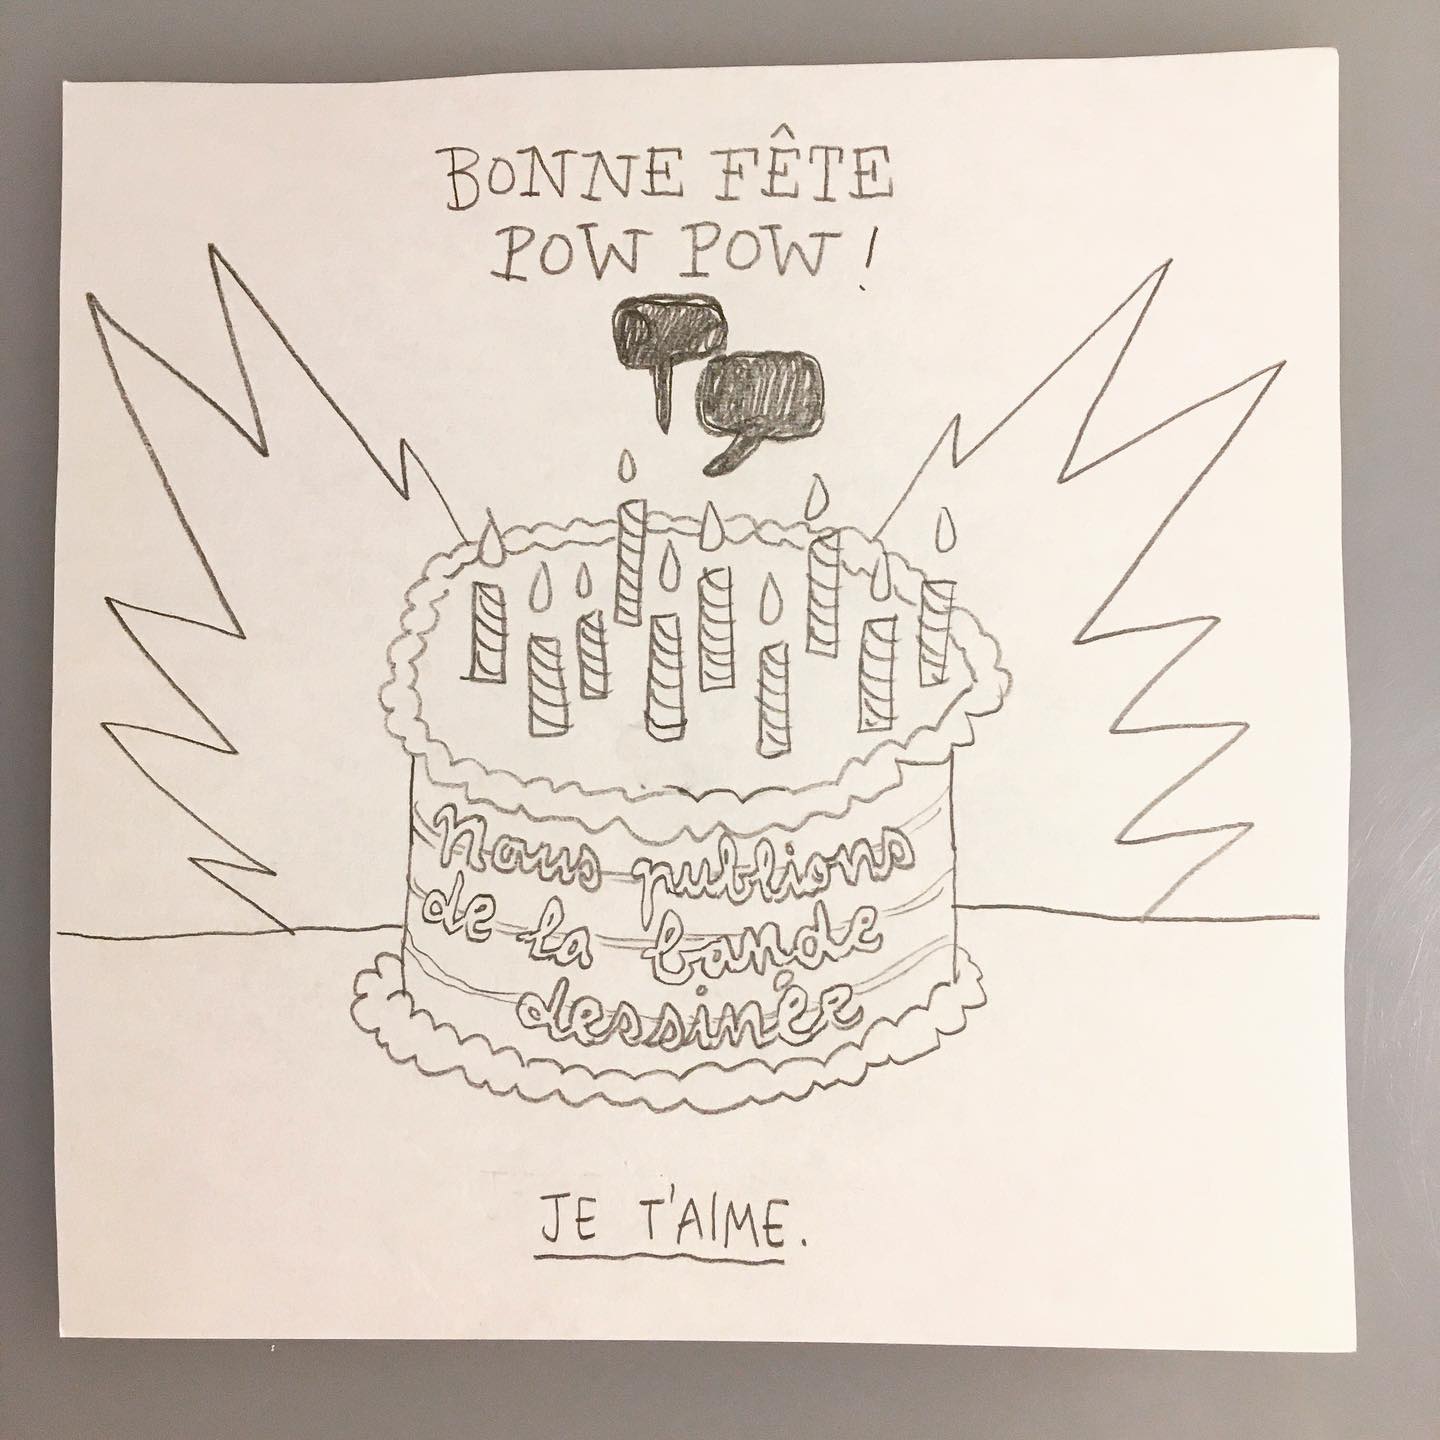 BONNE FÊTE
POW POW!
Nous publions
de la bande
dessinée
JE T'AIME.